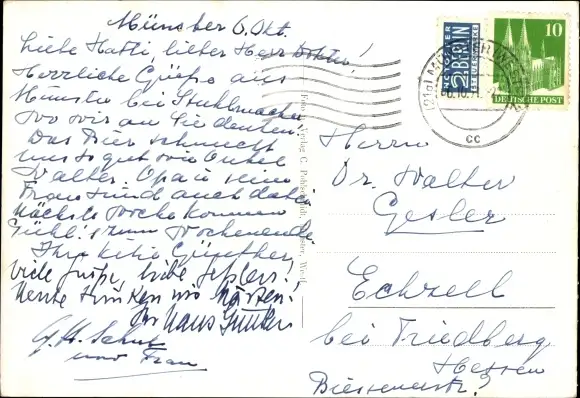 Münster 6. Okt.
Liebe Hatti, lieber Herr Doktor!
Herzliche Grüße aus
Münster bei Stuhlmacher
wo wir an Sie denken.
Das Bier schmeckt
uns so gut wie Onkel
Walter. Opa u seine
Frau sind auch dabei
Nächste Woche kommen
zum Wochenende
Ihre Günther
viele Grüße, liebe Geßlers!
Heute trinken wir
Ihr Hans Günther
und Frau
NOTOPFER
2 BERLIN
STEUERMARKE
10
DEUTSCHE POST
(21a) MÜNSTER (WESTF)
cc
Foto Verlag C. Münster, Westf.
Herrn
Dr. Walter
Gesler
Echzell
bei Friedberg
Hessen